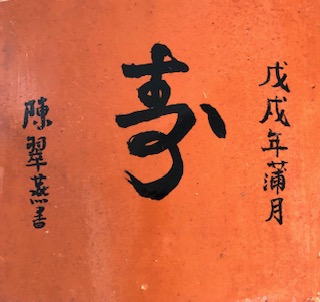 戊戌年蒲月
寿
陳翠燕書